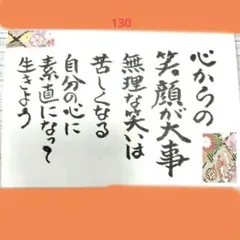 130
心からの
笑顔が大事
無理な笑いは
苦しくなる
自分の心に
素直になって
生きよう